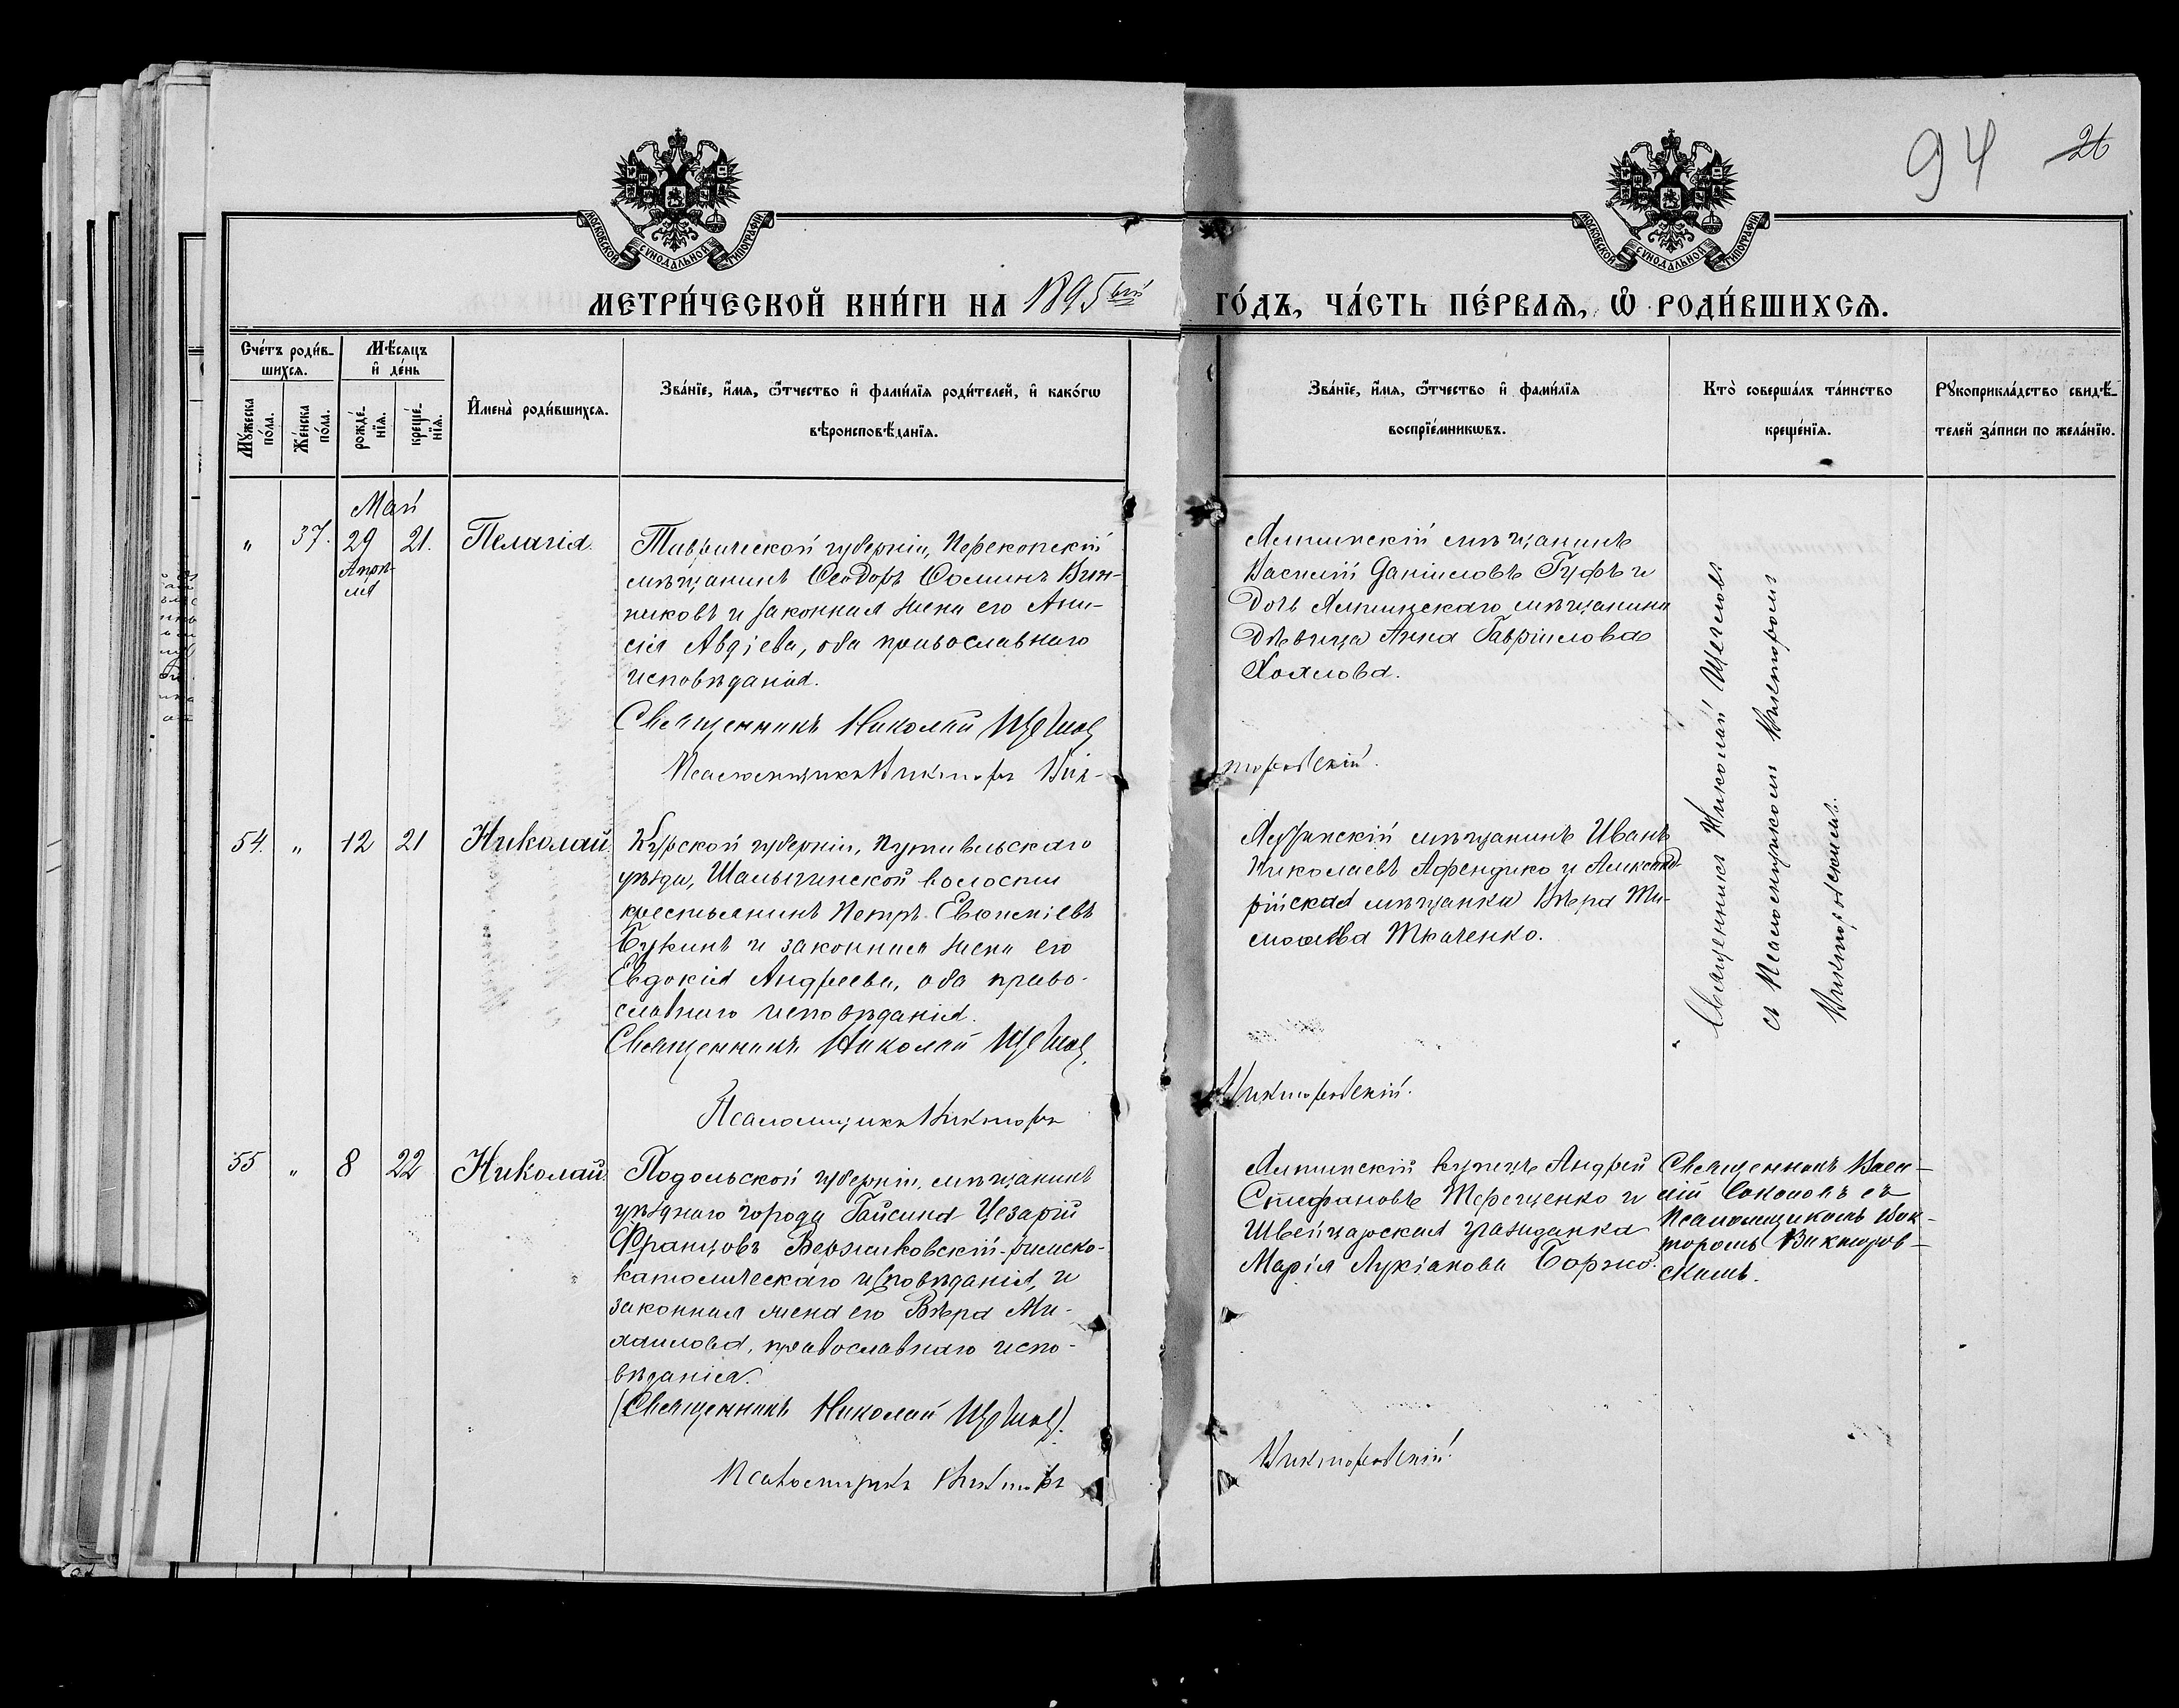 94 26
МОСКОВСКОЙ СѴНОДАЛЬНОЙ ТИПОГРАФІИ
МОСКОВСКОЙ СѴНОДАЛЬНОЙ ТИПОГРАФІИ
МЕТРИ́ЧЕСКОЙ КНИ́ГИ НА 1895ый ГО́ДЪ, ЧА́СТЬ ПЕ́РВАЯ, Ѽ РОДИ́ВШИХСЯ.
Сче́тъ роди́в-
шихся.
Му́жеска
по́ла.
Же́нска
по́ла.
Мѣ́сяцъ
и҆ де́нь
рожде́-
нїя.
креще́-
нїя.
И҆мена̀ роди́вшихся.
Зва́нїе, и҆́мя, ѻ҆́тчество и҆ фами́лїя роди́телей, и҆ како́гѡ
вѣроисповѣ́данїя.
Зва́нїе, и҆́мя, ѻ҆́тчество и҆ фами́лїя
воспрїе́мникѡвъ.
Кто̀ соверша́лъ та́инство
креще́нїя.
Рꙋкоприкла́дство свидѣ́-
телей за́писи по жела́нїю.
Май
" 37. 29 21. Пелагія.
Апрѣ-
ля
Таврической губерніи, Перекопскій
мѣщанинъ Ѳеодоръ Ѳоминъ Вин-
никовъ и законная жена его Ани-
сія Авдіева, оба православнаго
исповѣданія.
Священникъ Николай Щегловъ
Псаломщикъ Викторъ Вик-
торовскій.
Ялтинскій мѣщанинъ
Василій Даніиловъ Гуфъ и
дочь Ялтинскаго мѣщанина
дѣвица Анна Гавріилова
Хохлова.
Священникъ Николай Щегловъ
съ Псаломщикомъ Викторомъ
Викторовскимъ.
54. " 12 21 Николай.
Курской губерніи, Путивльскаго
уѣзда, Шалыгинской волости
крестьянинъ Петръ Евсевіевъ
и законная жена его
Евдокія Андреева, оба право-
славнаго исповѣданія.
Священникъ Николай Щегловъ
Псаломщикъ Викторъ
Викторовскій.
мѣщанинъ Иванъ
Николаевъ Афендико и Александ-
рійская мѣщанка Вѣра Ти-
моѳеева Ткаченко.
55 " 8 22 Николай.
Подольской губерніи, мѣщанинъ
уѣзднаго города Гайсина Цезарій
Францовъ Вержиковскій - римско-
католическаго исповѣданія, и
законная жена его Вѣра Ми-
хаилова, православнаго испо-
вѣданія.
Священникъ Николай Щегловъ.
Псаломщикъ Викторъ
Викторовскій.
Ялтинскій купецъ Андрей
Стефановъ Терещенко и
Швейцарская гражданка
Марія Лукіанова Боржо.
Священникъ Васи-
лій Соколовъ съ
Псаломщикомъ Вик-
торомъ Викторов-
скимъ.